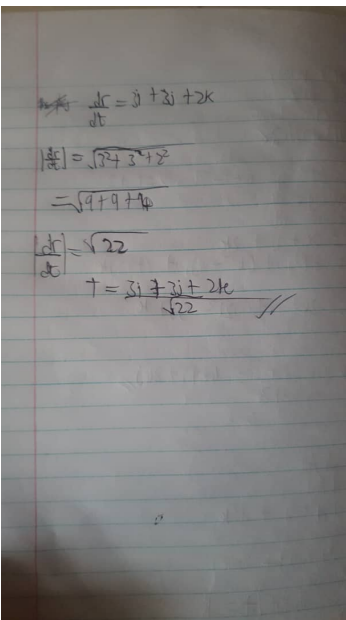 dr/dt = 3j + 3j + 2k
|dr/dt| = √3² + 3² + 2²
= √9 + 9 + 4
|dr/dt| = √22
T = 3i + 3j + 2k / √22 //